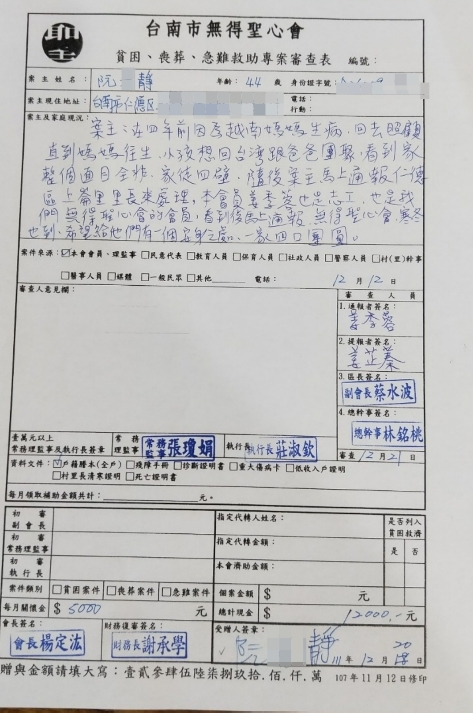 聖
台南市無得聖心會
貧困、喪葬、急難救助專案審查表 編號:
案主姓名: 阮 靜 年齡: 44 歲 身份證字號
案主現住地址: 台南市仁德區 電話: 行動:
案主及家庭現況: 案主:在四年前因為越南媽媽生病,回去照顧
直到媽媽往生,小孩想回台灣跟爸爸團聚,看到家
整個面目全非,家徒四壁,隨後案主馬上通報仁德
區上崙里里長來處理,本會員姜季蓉也是志工,也是我
們無得聖心會的會員,看到後馬上通報無得聖心會,寒冬
也到,希望給他們有一個安身之處。一家四口團圓。
案件來源: ☑本會會員、理監事 □民意代表 □教育人員 □保育人員 □社政人員 □警察人員 □村(里)幹事
□醫事人員 □媒體 □一般民眾 □其他 電話: 12月12日
審查人意見欄: 審查人員
1.通報者簽名:
姜季蓉
2.提報者簽名:
姜芷蓁
3.區長簽名:
副會長 蔡水波
4.總幹事簽名:
總幹事 林銘桃
壹萬元以上
常務理監事及執行長簽章 常務理事 常務監事 張瓊娟 執行長 執行長 莊淑欽 審查 12月21日
資料文件: ☑戶籍謄本(全戶) □殘障手冊 □診斷證明書 □重大傷病卡 □低收入戶證明
□村里長清寒證明 □死亡證明書
每月領取補助金額共計: 元。
初審副會長 指定代轉人姓名: 是否列入貧困救濟
初審常務理監事 指定代轉金額: 是 否
初審執行長 本會濟助金額:
案件類別 □貧困案件 □喪葬案件 □急難案件 個案金額 $ 元
每月關懷金 $ 5000 元 總計現金 $ 12000.- 元
會長簽名: 財務復審簽名: 受贈人簽章:
會長 楊定浤 財務長 謝承學 阮 靜 年12月20日
贈與金額請填大寫:壹貳參肆伍陸柒捌玖拾.佰.仟.萬 107年11月12日修印